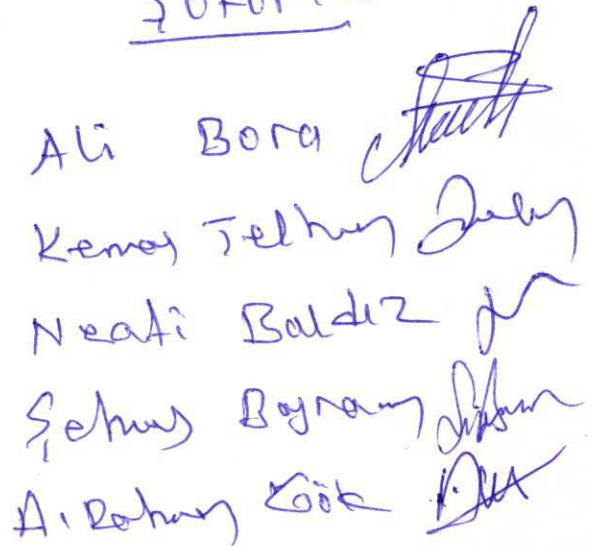 Ali Bora
Kemal
Necati Baldız
Şehmus Bayram
A. Rahman Gök